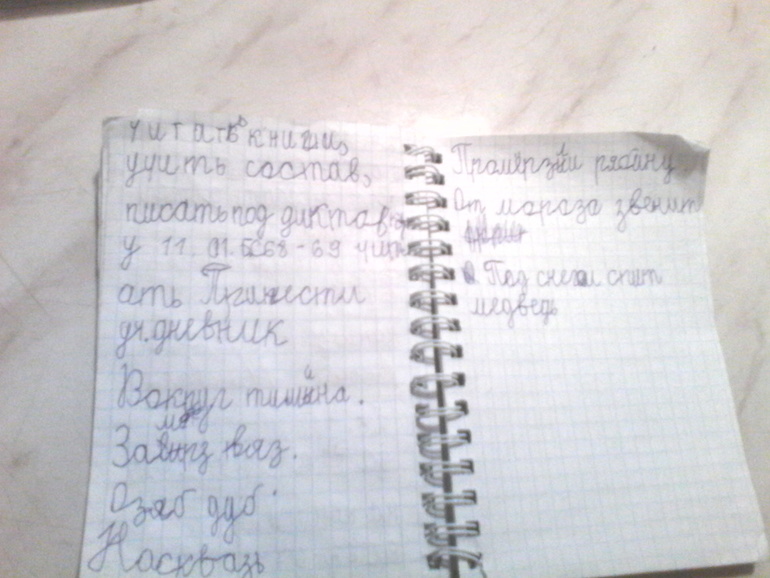 читать книги,
учить состав,
писать под диктовку
У 11. 01. 68 - 69 чит
ать Принести
чт.дневник
Вокруг тишина.
Замёрз вяз.
Озяб дуб.
Насквозь
Промёрзли рябину.
От мороза звенит
Под снегом спит
медведь